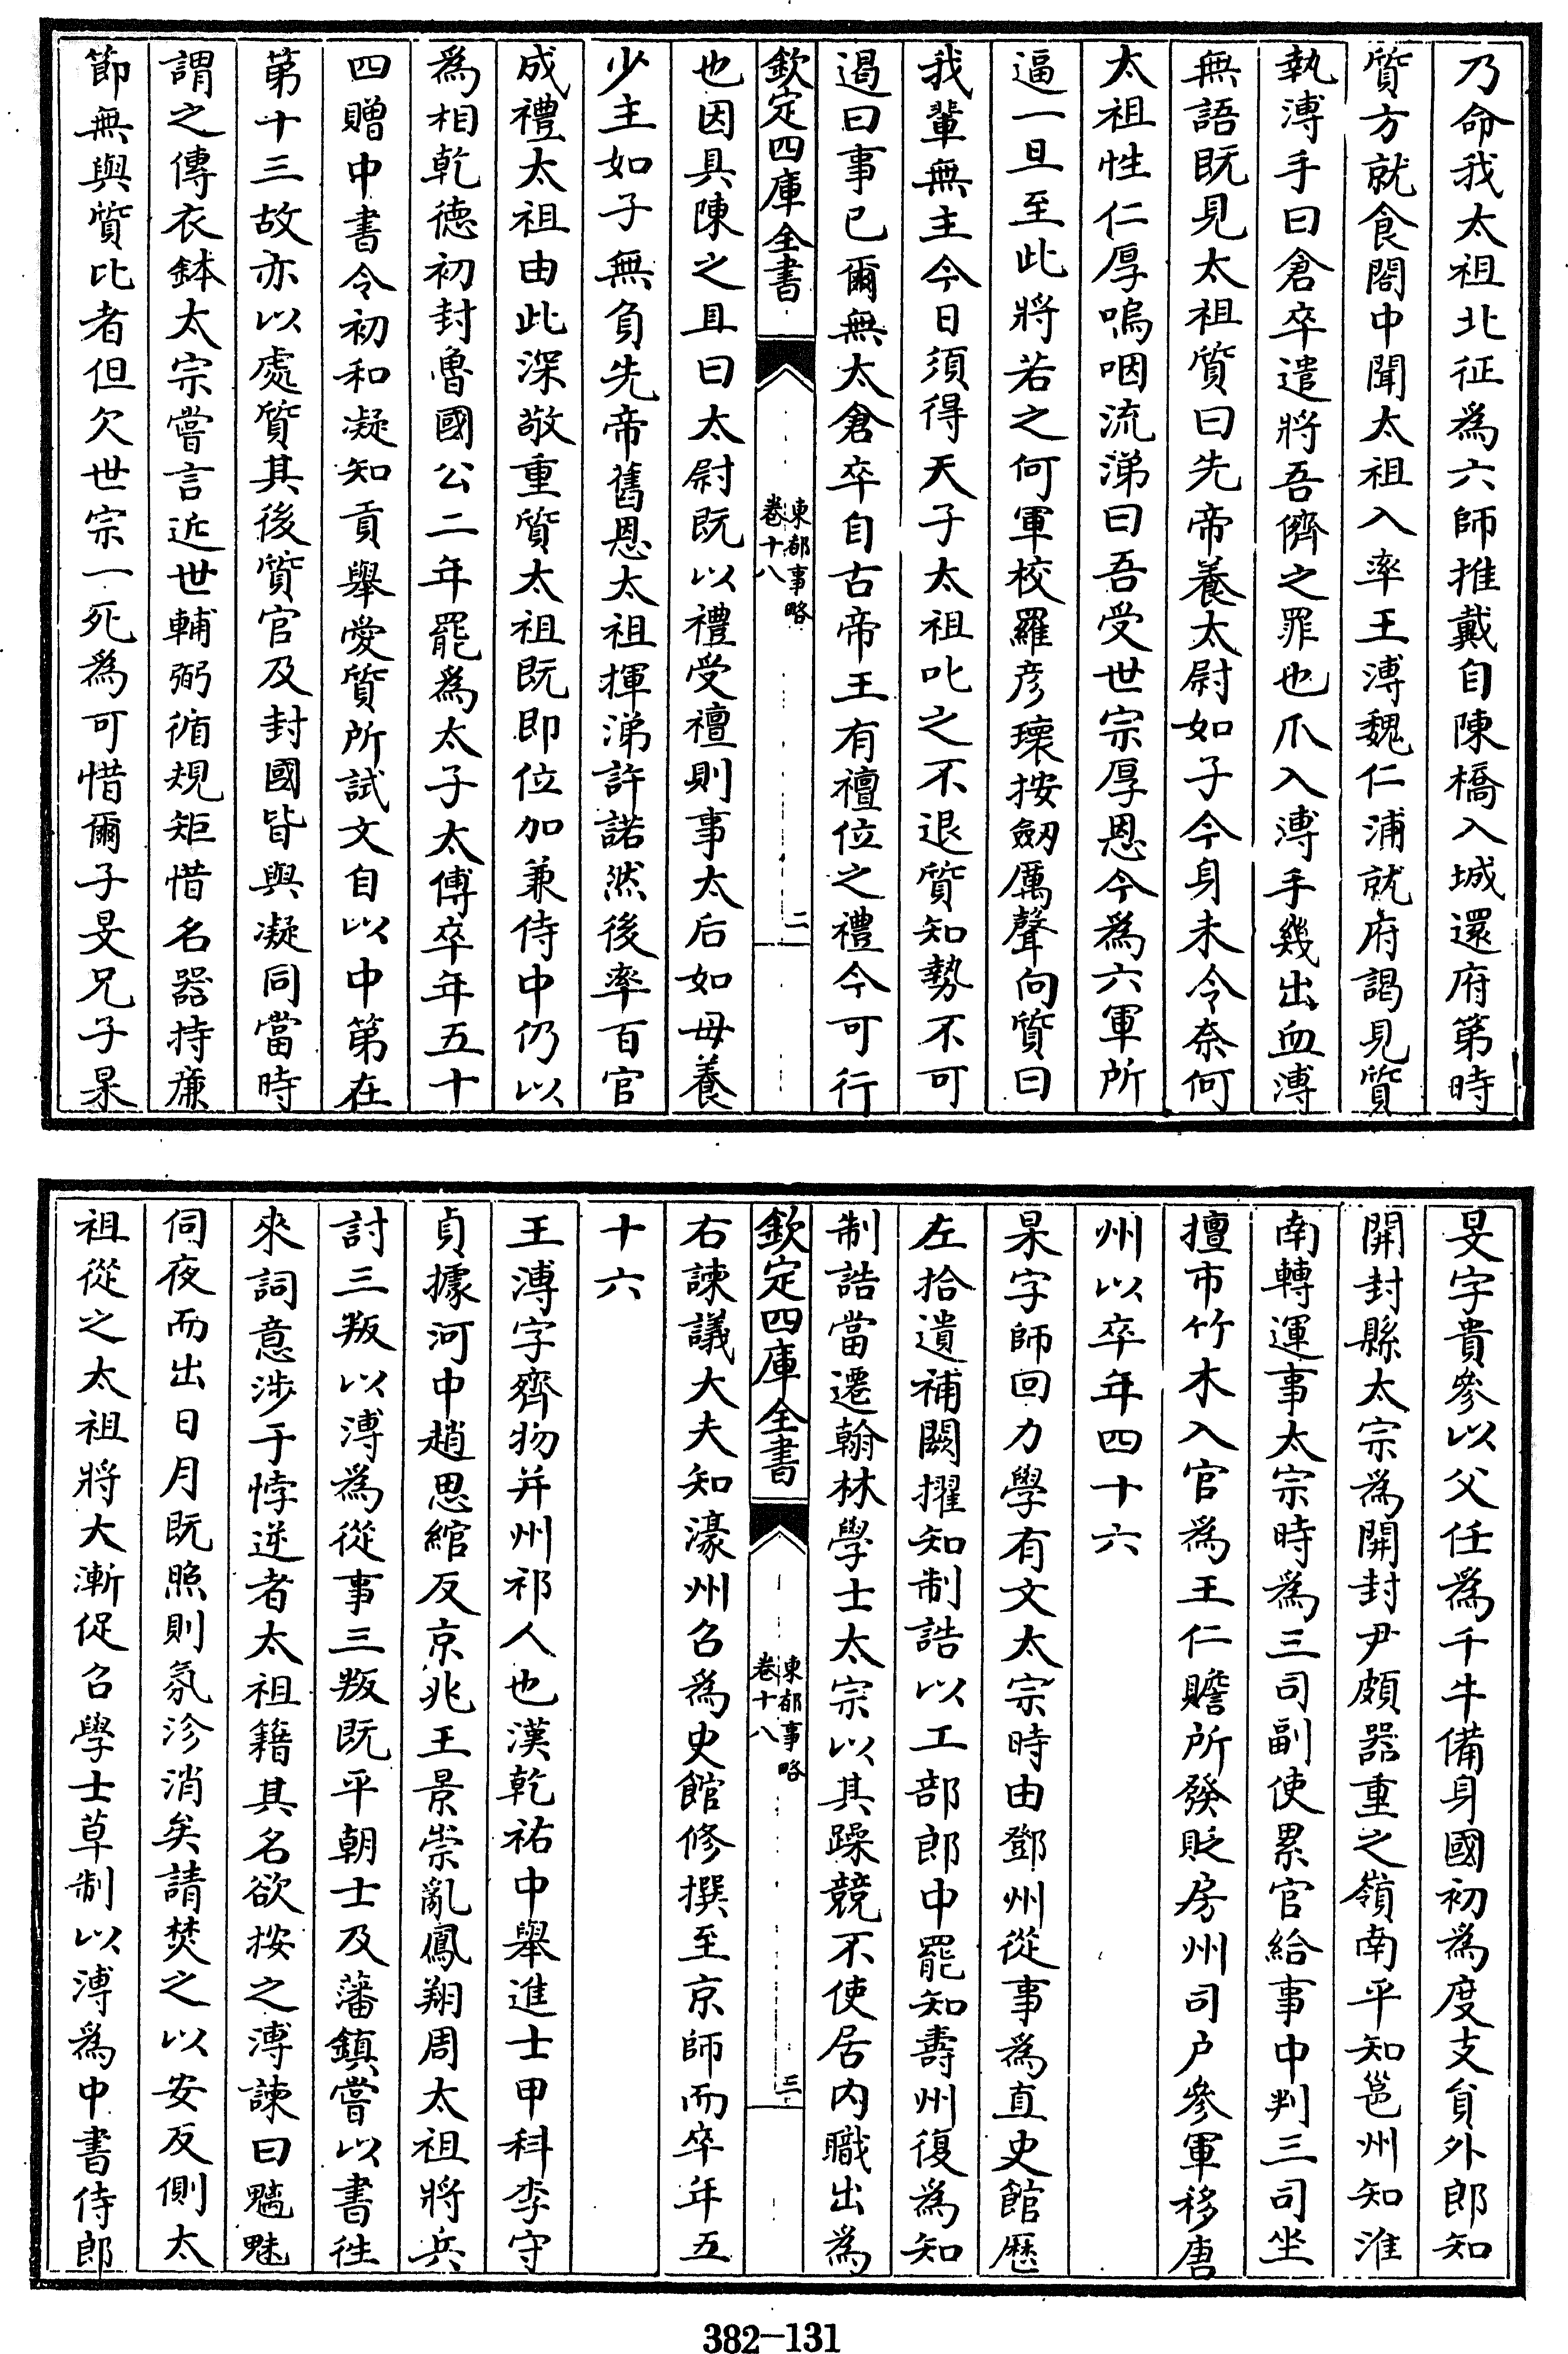 乃命我太祖北征爲六師推戴自陳橋入城還府第時
質方就食閤中聞太祖入率王溥魏仁浦就府謁見質
執溥手曰倉卒遣將吾儕之罪也爪入溥手幾出血溥
無語既見太祖質曰先帝養太尉如子今身未令奈何
太祖性仁厚嗚咽流涕曰吾受世宗厚恩今爲六軍所
逼一旦至此將若之何軍校羅彦瓌按劒厲聲向質曰
我輩無主今日須得天子太祖叱之不退質知勢不可
遏曰事已爾無太倉卒自古帝王有禪位之禮今可行
欽定四庫全書
東都事略
卷十八
二
也因具陳之且曰太尉既以禮受禪則事太后如母養
少主如子無負先帝舊恩太祖揮涕許諾然後率百官
成禮太祖由此深敬重質太祖既即位加兼侍中仍以
爲相乾德初封魯國公二年罷爲太子太傅卒年五十
四贈中書令初和凝知貢舉愛質所試文自以中第在
第十三故亦以處質其後質官及封國皆與凝同當時
謂之傳衣鉢太宗嘗言近世輔弼循規矩惜名器持廉
節無與質比者但欠世宗一死爲可惜爾子旻兄子杲
旻字貴參以父任爲千牛備身國初爲度支員外郎知
開封縣太宗爲開封尹頗器重之嶺南平知邕州知淮
南轉運事太宗時爲三司副使累官給事中判三司坐
擅市竹木入官爲王仁贍所發貶房州司戸參軍移唐
州以卒年四十六
杲字師回力學有文太宗時由鄧州從事爲直史館歴
左拾遺補闕擢知制誥以工部郎中罷知壽州復爲知
制誥當遷翰林學士太宗以其躁競不使居内職出爲
欽定四庫全書
東都事略
卷十八
三
右諫議大夫知濠州召爲史館修撰至京師而卒年五
十六
王溥字齊物并州祁人也漢乾祐中舉進士甲科李守
貞據河中趙思綰反京兆王景崇亂鳳翔周太祖將兵
討三叛以溥爲從事三叛既平朝士及藩鎮嘗以書往
來詞意涉于悖逆者太祖籍其名欲按之溥諫曰魑魅
伺夜而出日月既照則氛沴消矣請焚之以安反側太
祖從之太祖將大漸促召學士草制以溥爲中書侍郎
382-131